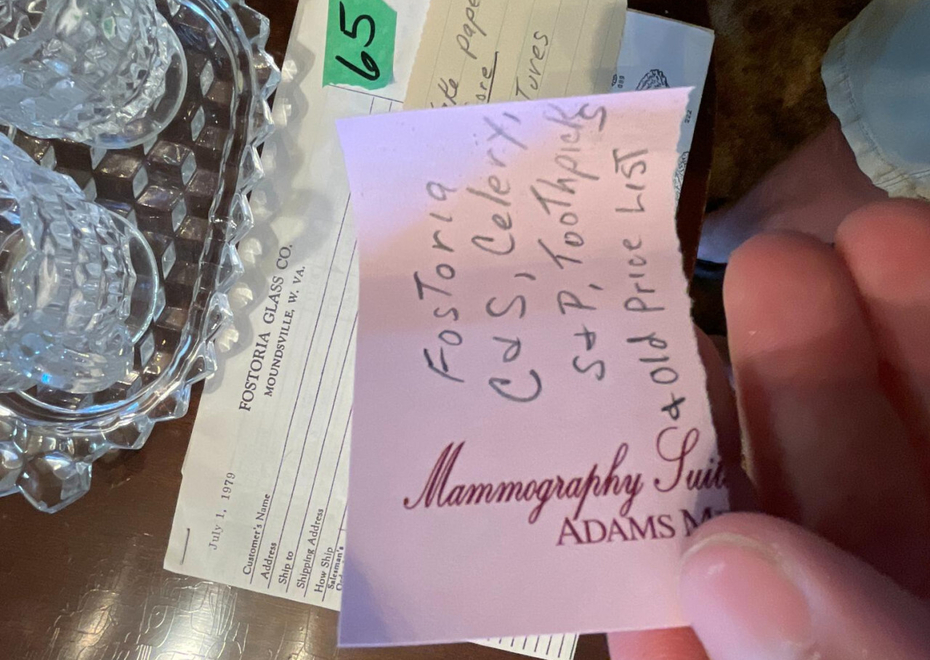 65
ke pape
ore
Tures
FOSTORIA GLASS CO.
MOUNDSVILLE, W. VA.
July 1, 1979
Customer's Name
Address
Ship to
Shipping Address
How Ship
Salesman's
Fostoria
C & S, Celery,
S & P, Toothpicks
& Old Price LIST
Mammography Suit
ADAMS M